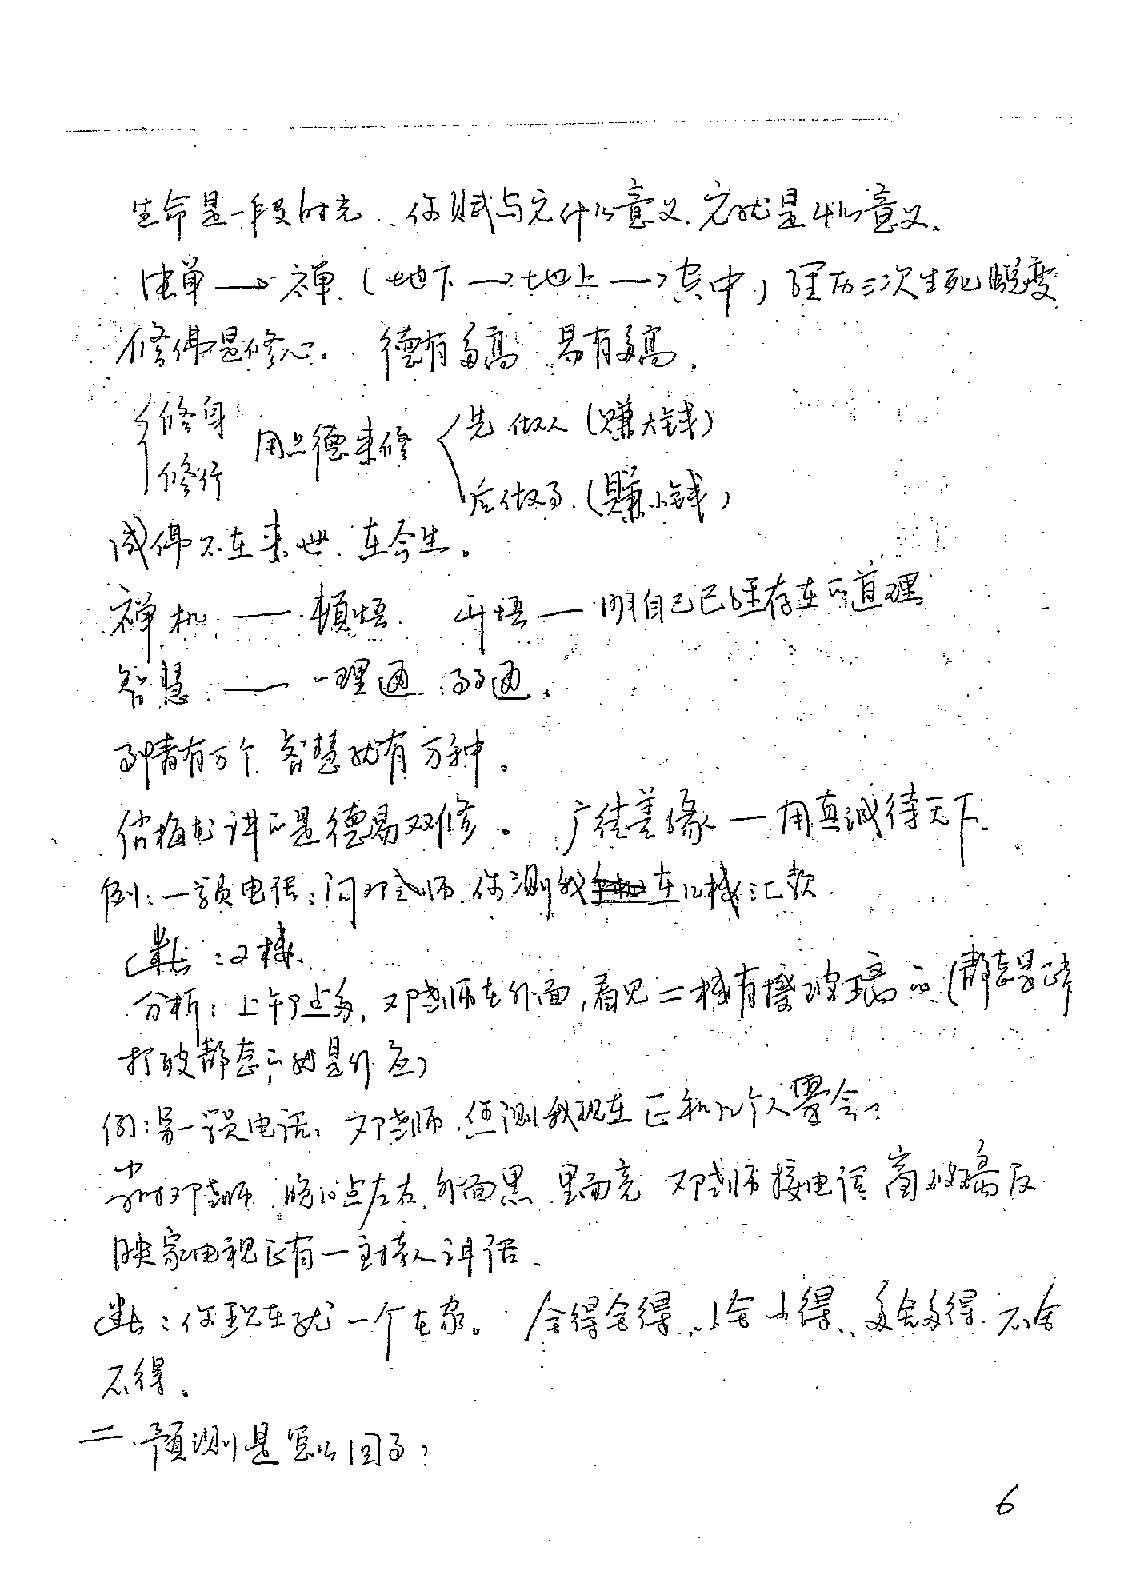 生命是一段时光、你赋与它什么意义、它就是什么意义、
蝉 → 禅（地下 → 地上 → 空中）经历三次生死蜕变
修佛是修心。 德有多高 易有多高、
修身 用上德来修 先做人（赚大钱）
修行 后做事（赚小钱）
成佛不在来世、在今生。
禅机 — 顿悟 开悟 — 明白自己已经存在的道理
智慧 — 一理通 事事通。
事情有万个 智慧就有万种。
讲的是德易双修。 广结善缘 — 用真诚待天下
例：一学员电话：问邓老师、你测我在几楼汇款
断：2楼、
分析：上午9点多，邓老师在外面，看见二楼有擦玻璃的（静态
打破静态的就是外应）
例：另一学员电话：邓老师、您测我现在正和几个人聚会？
当时邓老师 晚10点左右、外面黑、里面亮 邓老师接电话 窗玻璃反
映家电视正有一主持人讲话、
断：你现在就一个在家。 舍得舍得、小舍小得、多舍多得、不舍
不得。
二、预测是怎么回事？
6